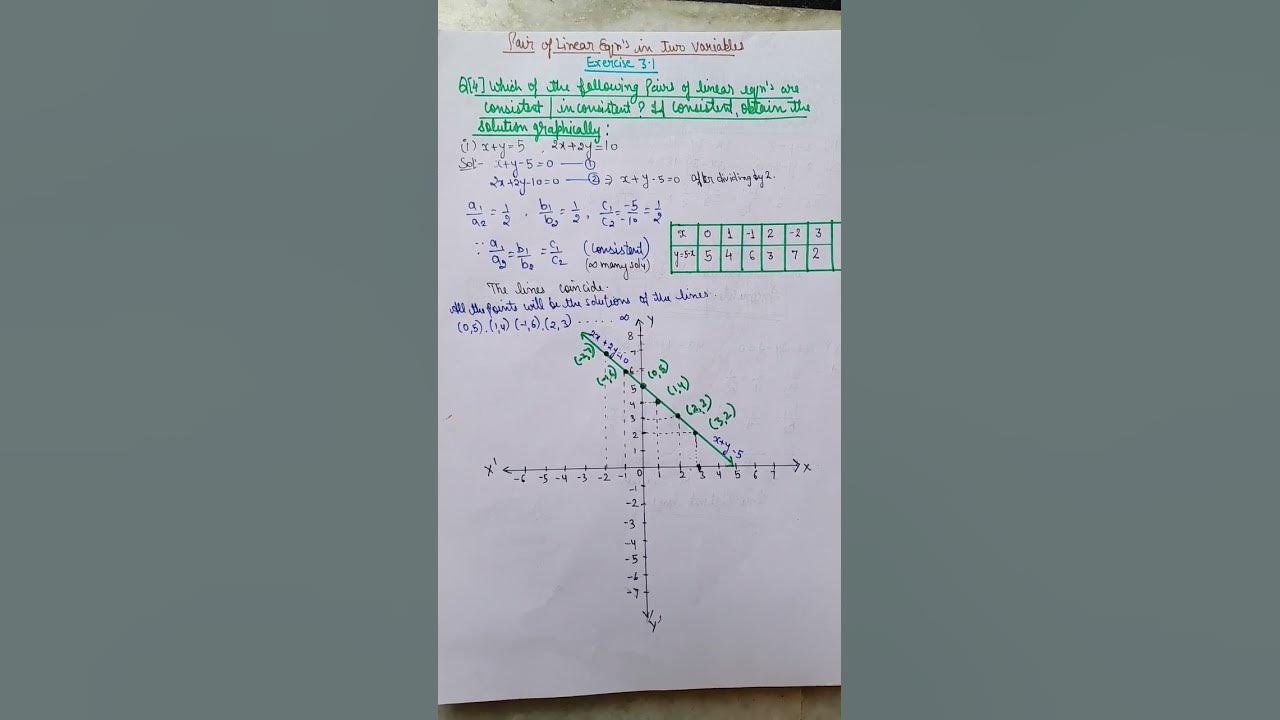 Pair of Linear Eqn's in Two Variables
Exercise 3.1
Q[4] Which of the following Pairs of linear eqn's are
consistent | inconsistent? If consistent, obtain the
solution graphically:
(i) x+y=5 , 2x+2y=10
Sol:- x+y-5=0 —— ①
2x+2y-10=0 —— ② ⇒ x+y-5=0 after dividing by 2.
a₁/a₂ = 1/2 , b₁/b₂ = 1/2 , c₁/c₂ = -5/-10 = 1/2
x 0 1 -1 2 -2 3
y=5-x 5 4 6 3 7 2
∵ a₁/a₂ = b₁/b₂ = c₁/c₂ (consistent)
(∞ many soln)
The lines coincide.
All the points will be the solutions of the lines.
(0,5), (1,4) (-1,6), (2,3) ...... ∞
Y
8
7
6
5
4
3
2
1
2x+2y=10
(-2,7)
(-1,6)
(0,5)
(1,4)
(2,3)
(3,2)
x+y=5
X' -6 -5 -4 -3 -2 -1 0 1 2 3 4 5 6 7 X
-1
-2
-3
-4
-5
-6
-7
Y'